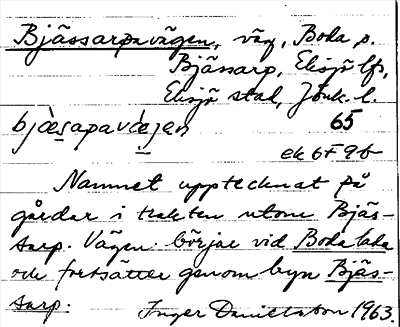 Bjässarpavägen, väg, Boda s.
Bjässarp, Eksjö lfs,
Eksjö stad, Jönk. l.
bjæ̀s̠apavæ̀jen 65
ek 6F 9b
Namnet upptecknat på
gårdar i trakten utom Bjäs-
sarp. Vägen börjar vid Boda lada
och fortsätter genom byn Bjäs-
sarp. Inger Danielsson 1963.